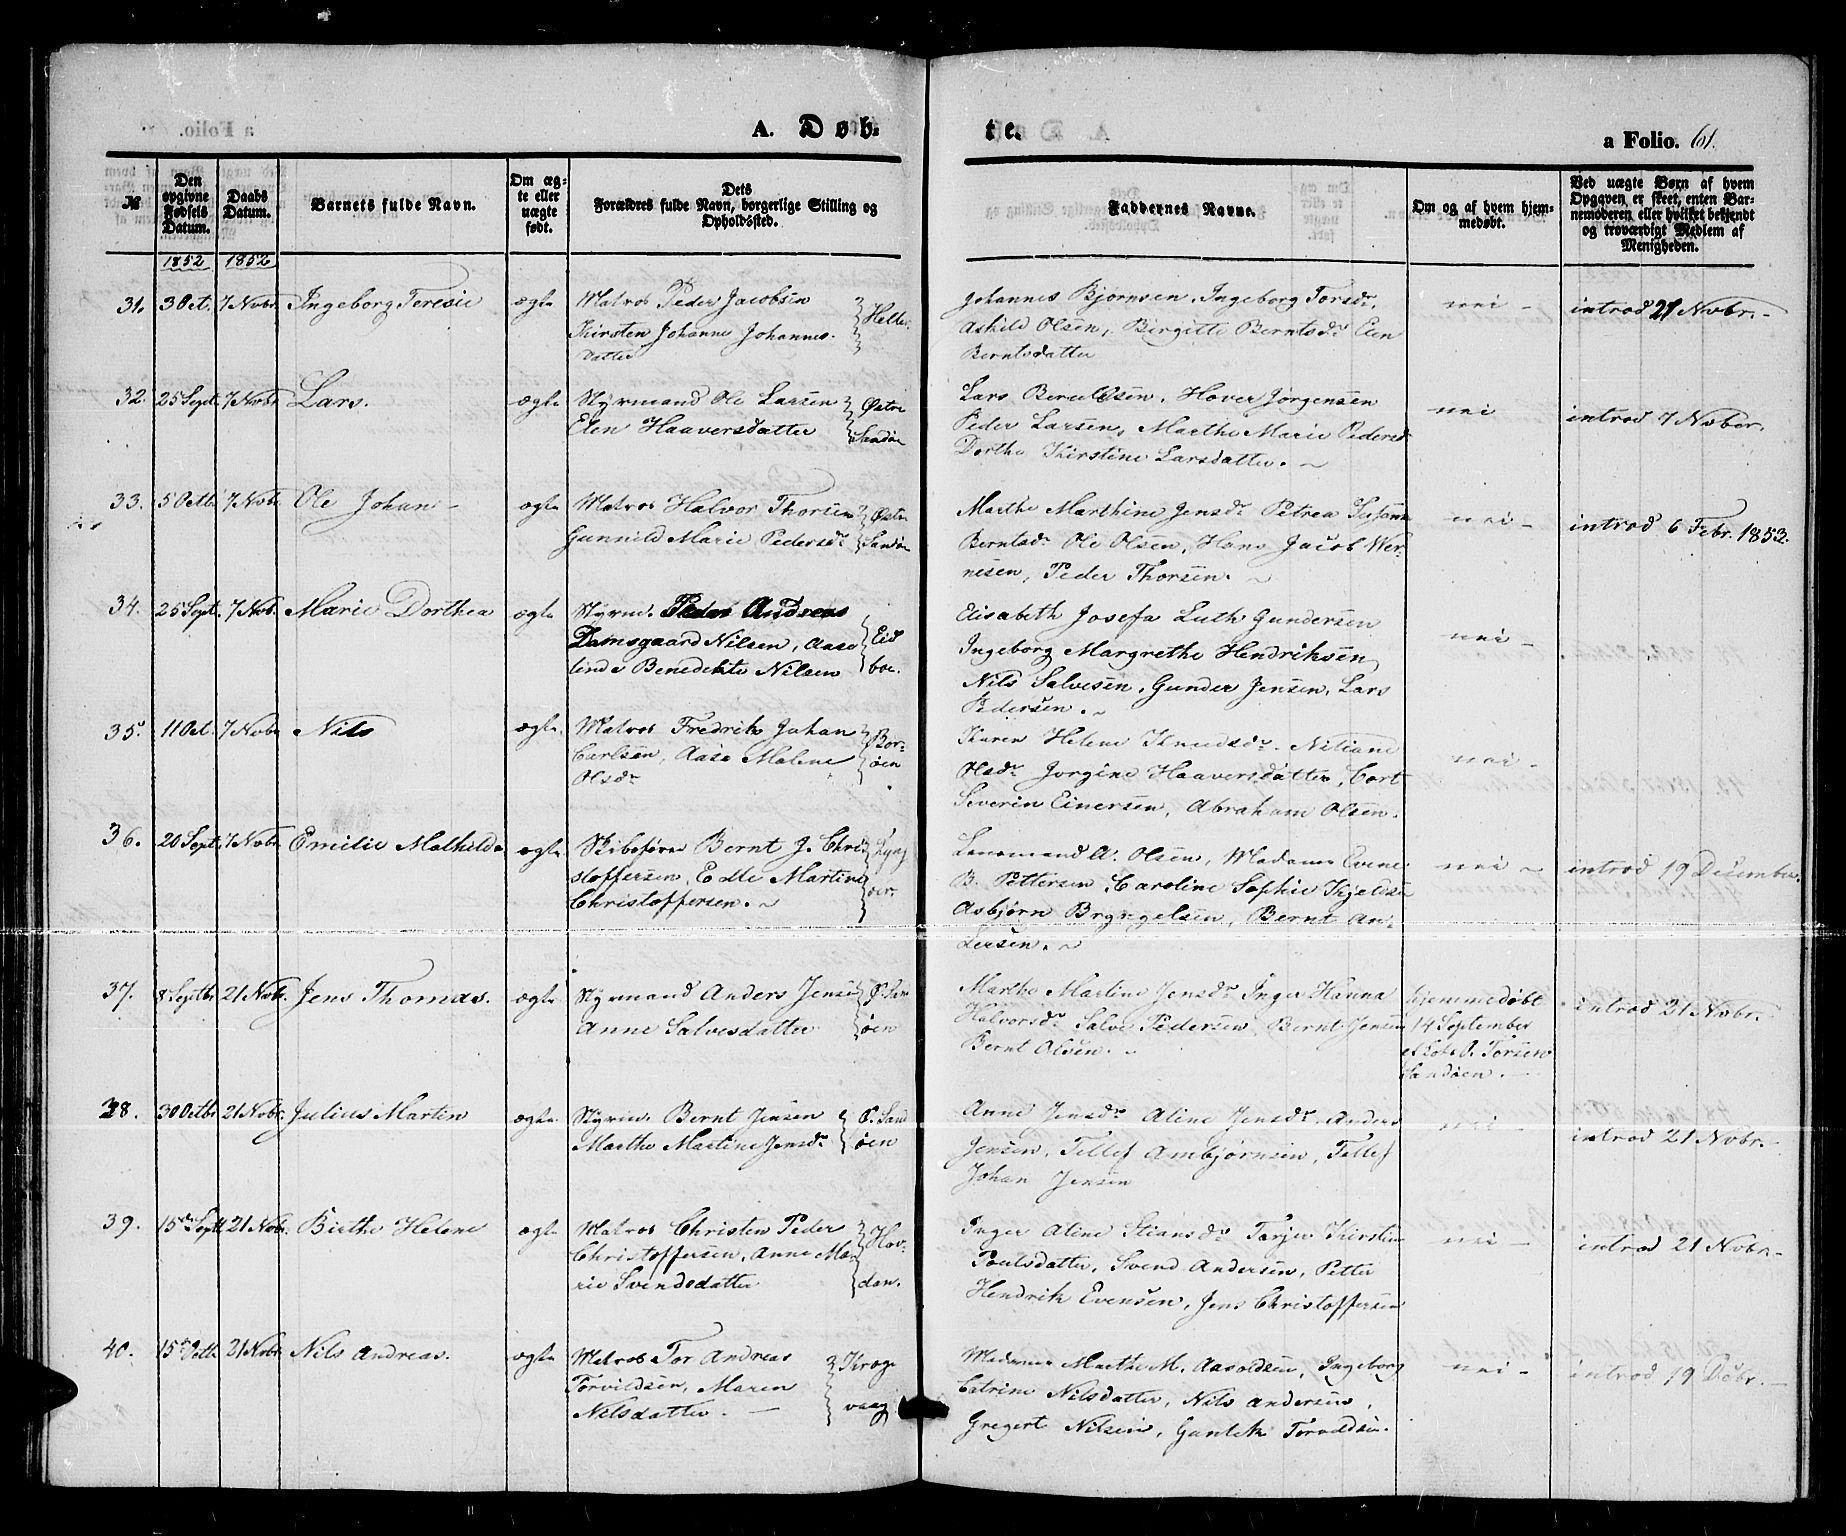 A. Døb-
te.
a Folio. 61.
№
Den opgivne Fødsels Datum.
Daabs Datum.
Barnets fulde Navn.
Om ægte eller uægte født.
Dets Forældres fulde Navn, borgerlige Stilling og Opholdssted.
Faddernes Navne.
Om og af hvem hjemmedøbt.
Ved uægte Børn af hvem Opgaven er skeet, enten Barnemoderen eller hvilket bekjendt og troværdigt Medlem af Menigheden.
1852 1852
31. 3 Oct. 7 Novbr. Ingeborg Teresie ægte
Matros Peder Jacobsen
Kirsten Johanne Johannes-
datter
Johannes Bjørnsen, Ingeborg Torsdr.
Askild Olsen, Birgitte Berntsdr. Elen
Berntsdatter
nei -
introd 21 Novbr. -
32. 25 Sept. 7 Novbr. Lars. ægte
Styrmand Ole Larsen
Elen Haaversdatter
Østre
Sandøe
Lars Olsen, Hover Jørgensen
Peder Larsen, Marthe Marie Pedersd.
Dorthe Kirstine Larsdatter. ~
nei
introd 7 Novber.
33. 5 Octbr. 7 Novbr. Ole Johan - ægte
Matros Halvor Thorsen
Gunnild Marie Pedersdr.
Østre
Sandøe
Marthe Marthine Jensdr. Petrea
Berntsdr. Ole Olsen, Hans Jacob Wer-
nesen, Peder Thorsen. ~
nei -
introd 6 Febr. 1853.
34. 25 Sept. 7 Nob. Marie Dorthea ægte
Styrm. Peder Andreas
Damsgaard Nilsen, Aase
linde Benedikte Nilsen
Eid
boe.
Elisabeth Josefa Luth Gundersen
Ingeborg Margrethe Hendriksen,
Nils Salvesen, Gunder Jensen, Lars
Pedersen. ~
nei -
35. 11 Oct. 7 Novbr. Nils ægte.
Matros Fredrik Johan
Carlsen, Aase Malene
Olsdr.
Bor-
øen
Karen Helene Knudsdr. Neliane
Olsdr. Jorgine Haaversdatter, Cort
Severin Einersen, Abraham Olsen.
nei -
36. 20 Sept. 7 Novbr. Emilie Mathilde ægte.
Skibsfører Bernt J. Chri
stoffersen, Edle Martine
Christoffersen. ~
Lyng
øer.
Lensmand A. Olsen, Madame Evene
B. Pettersen, Caroline Sophie Kjelds
Asbjørn Bryngelsen, Bernt An-
dersen. ~
nei ~
introd 19 December.
37. 8 Septbr. 21 Novbr. Jens Thomas. ægte
Styrmand Anders Jensen
Anne Salvesdatter
Ø. San
øen
Marthe Martine Jensdr. Inger Hanna
Halvorsdr. Salve Pedersen, Bernt Jensen
Bernt Olsen. ~
hjemmedøbt
14 September
O. Torsen
Sandøen. -
introd 21 Novbr. -
38. 30 Octbr. 21 Novbr. Julius Martin ægte.
Styrm. Bernt Jensen
Marthe Martine Jensdr.
Ø. Sand
øen
Anne Jensdr. Aline Jensdr. Anders
Jensen, Tellef Ambjørnsen, Tellef
Johan Jensen
nei -
introd 21 Novbr. -
39. 15de Sept. 21 Novbr. Birthe Helene ægte.
Matros Christen Peder
Christoffersen, Anne Ma-
rie Svendsdatter
Hov-
dan.
Inger Aline Stiansdr. Tarjer Kirstin
Poulsdatter, Svend Andersen, Petter
Hendrik Evensen, Jens Christoffersen
nei -
introd 21 Novbr. -
40. 15de Octbr. 21 Novbr. Nils Andreas. ægte
Matros Tor Andreas
Torvildsen, Maren
Nilsdatter. -
Krog
vaag
Madame Marthe M. Aasoldsen, Ingeborg
Catrine Nilsdatter, Nils Andersen,
Gregert Nilsen, Torvildsen.
nei -
introd 19 Debr. -